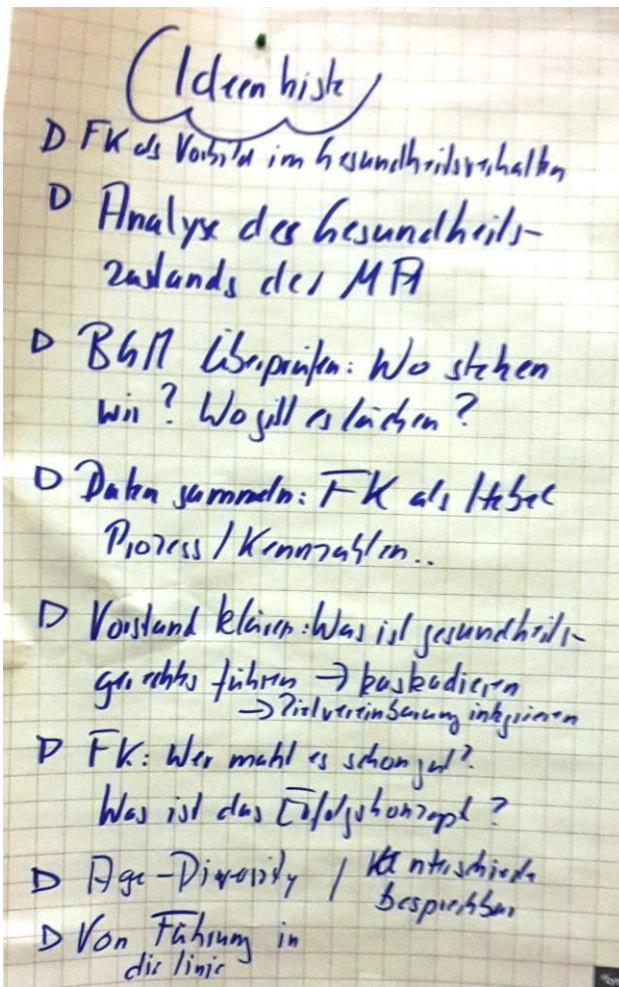 Ideenliste
▷ FK als Vorbild im Gesundheitsverhalten
▷ Analyse des Gesundheits-
zustands der MA
▷ BGM überprüfen: Wo stehen
wir? Wo gibt es Lücken?
▷ Daten sammeln: FK als Hebel
Prozess / Kennzahlen..
▷ Vorstand klären: Was ist gesundheits-
gerechtes führen → kaskadieren
→ Zielvereinbarung integrieren
▷ FK: Wer macht es schon gut?
Was ist das Erfolgskonzept?
▷ Age-Diversity / Unterschiede
besprechbar
▷ Von Führung in
die linie